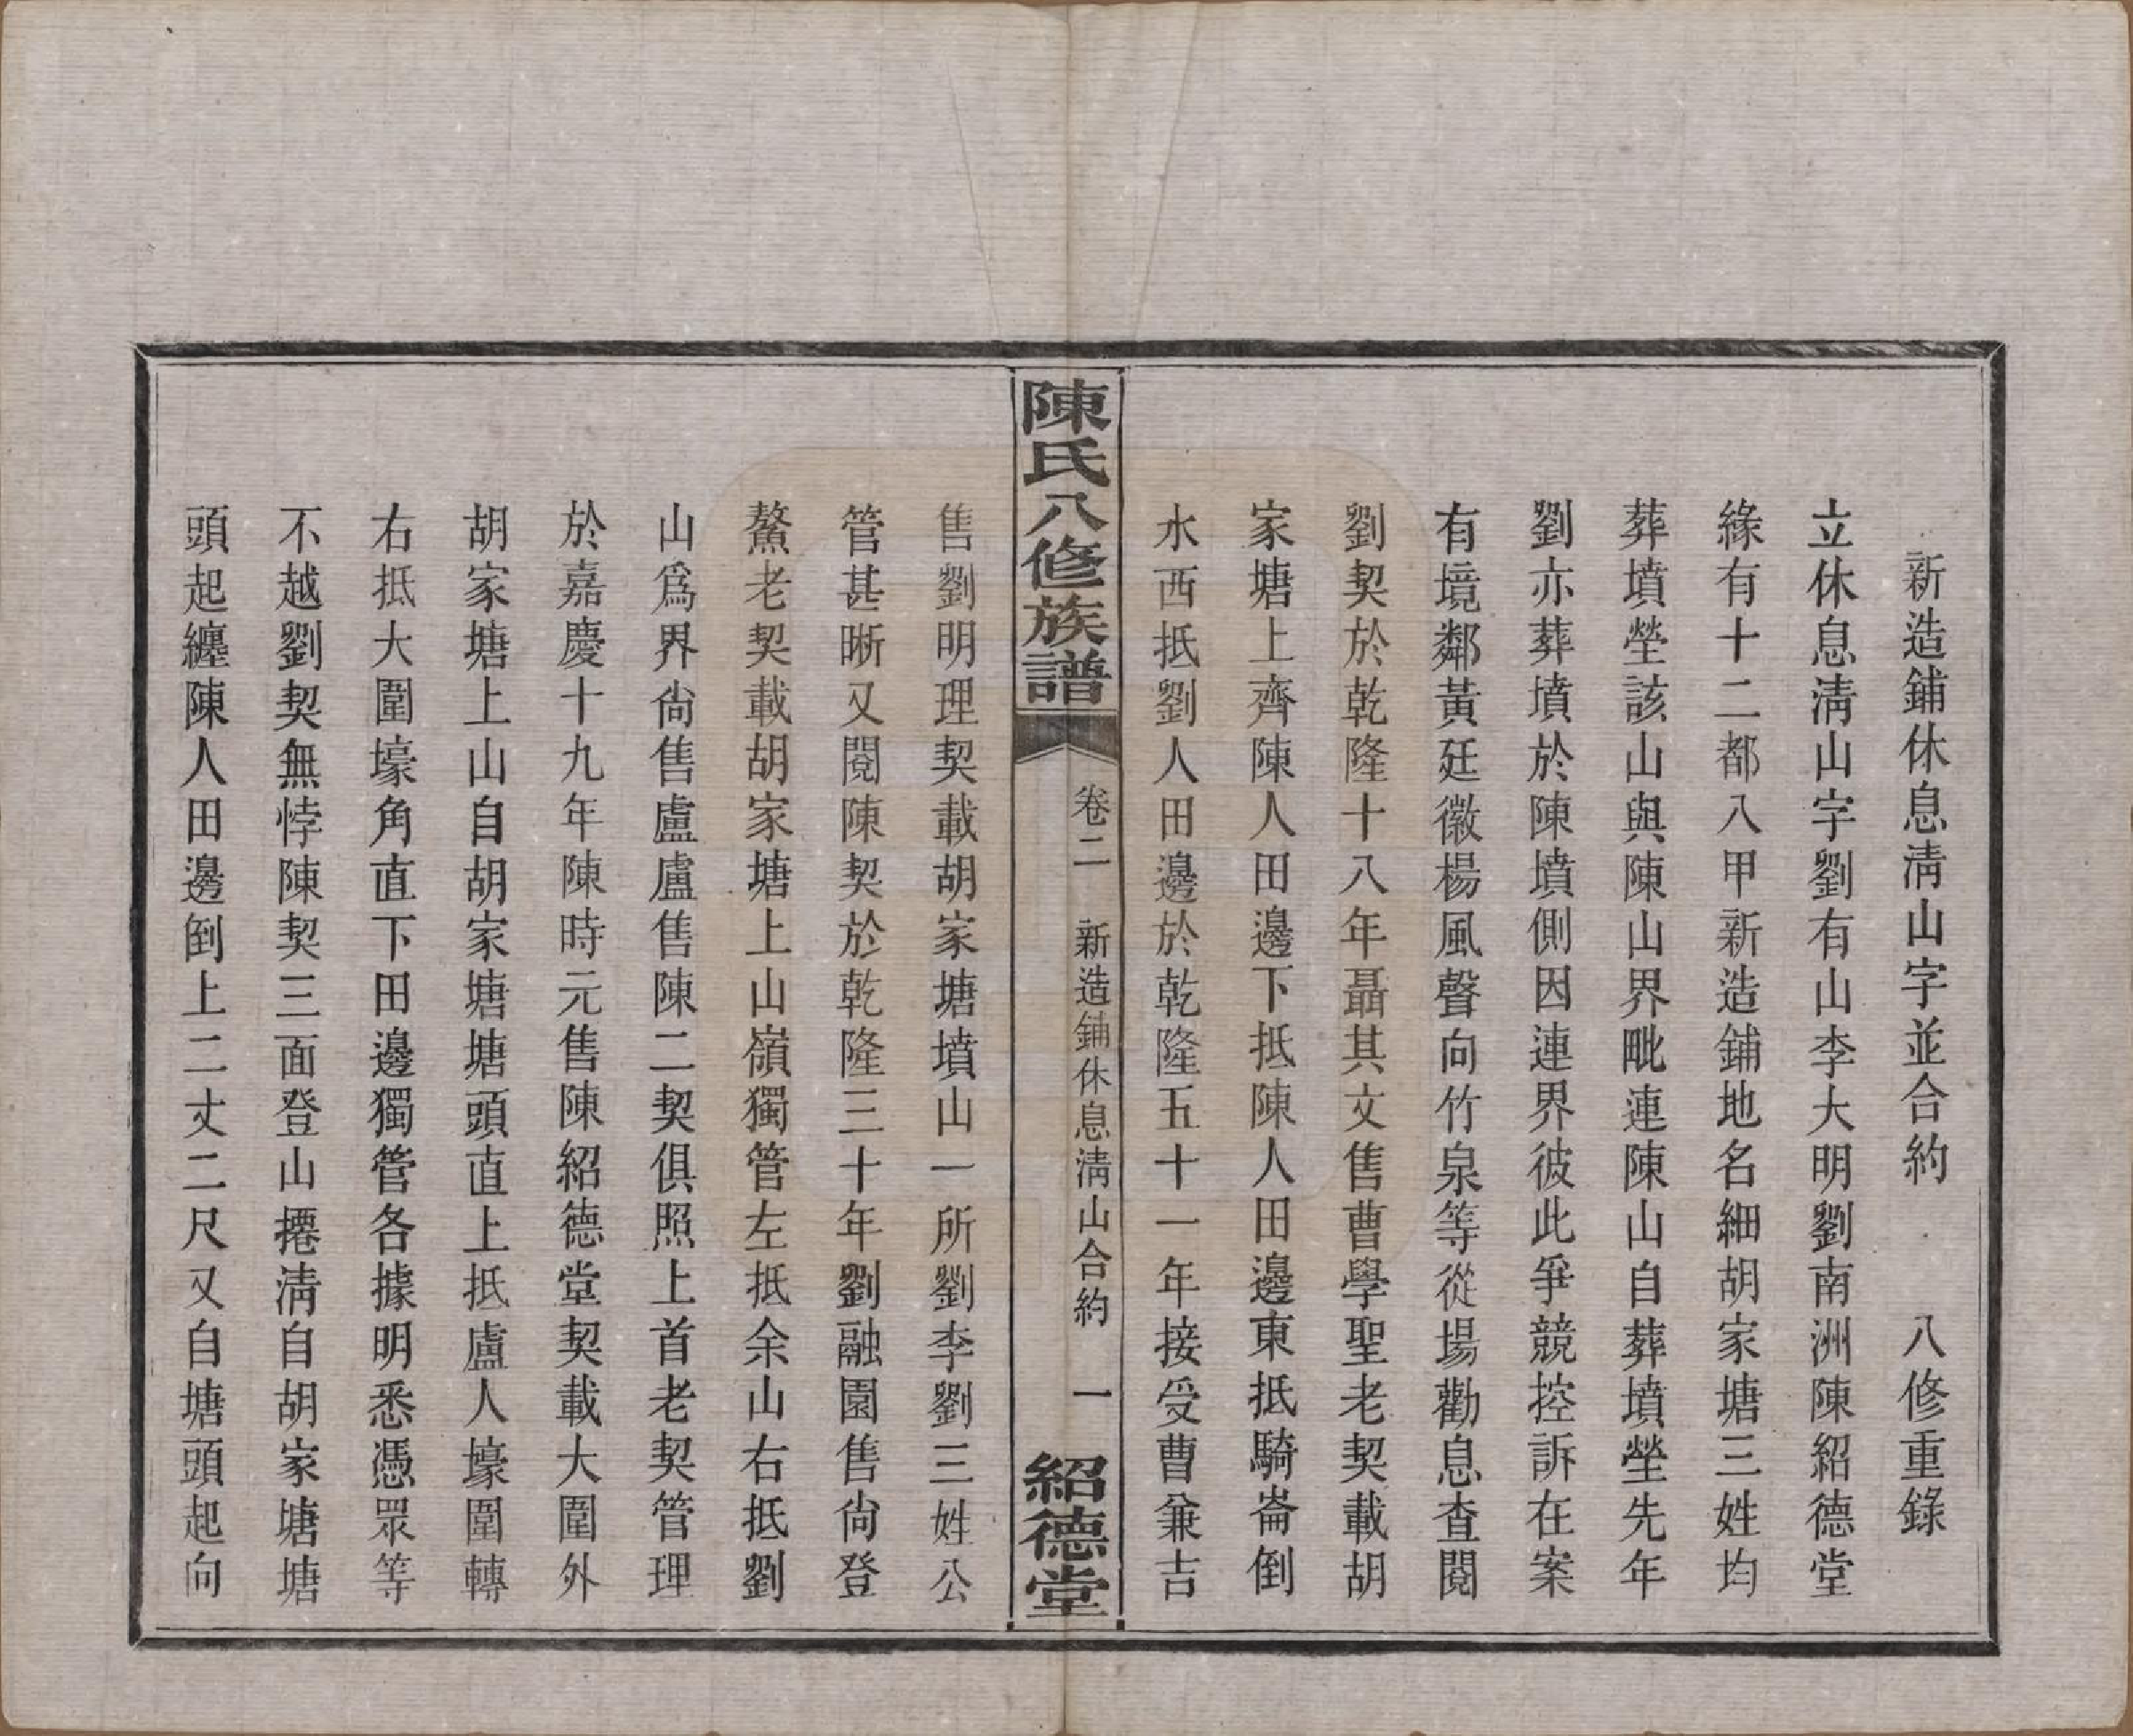 新造鋪休息淸山字並合約　八修重錄
立休息淸山字劉有山李大明劉南洲陳紹德堂
緣有十二都八甲新造鋪地名細胡家塘三姓均
葬墳塋該山與陳山界毗連陳山自葬墳塋先年
劉亦葬墳於陳墳側因連界彼此爭競控訴在案
有境鄰黃廷徽楊風聲向竹泉等從場勸息查閱
劉契於乾隆十八年聶其文售曹學聖老契載胡
家塘上齊陳人田邊下抵陳人田邊東抵騎崙倒
水西抵劉人田邊於乾隆五十一年接受曹兼吉
陳氏八修族譜
卷二　新造鋪休息淸山合約　一
紹德堂
售劉明理契載胡家塘墳山一所劉李劉三姓公
管甚晰又閱陳契於乾隆三十年劉融園售尙登
鰲老契載胡家塘上山嶺獨管左抵余山右抵劉
山爲界尙售盧盧售陳二契俱照上首老契管理
於嘉慶十九年陳時元售陳紹德堂契載大圍外
胡家塘上山自胡家塘塘頭直上抵盧人壕圍轉
右抵大圍壕角直下田邊獨管各據明悉憑眾等
不越劉契無悖陳契三面登山攓淸自胡家塘塘
頭起纏陳人田邊倒上二丈二尺又自塘頭起向